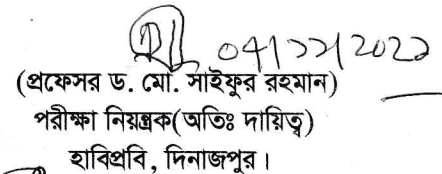 (প্রফেসর ড. মো. সাইফুর রহমান)
পরীক্ষা নিয়ন্ত্রক(অতিঃ দায়িত্ব)
হাবিপ্রবি, দিনাজপুর।